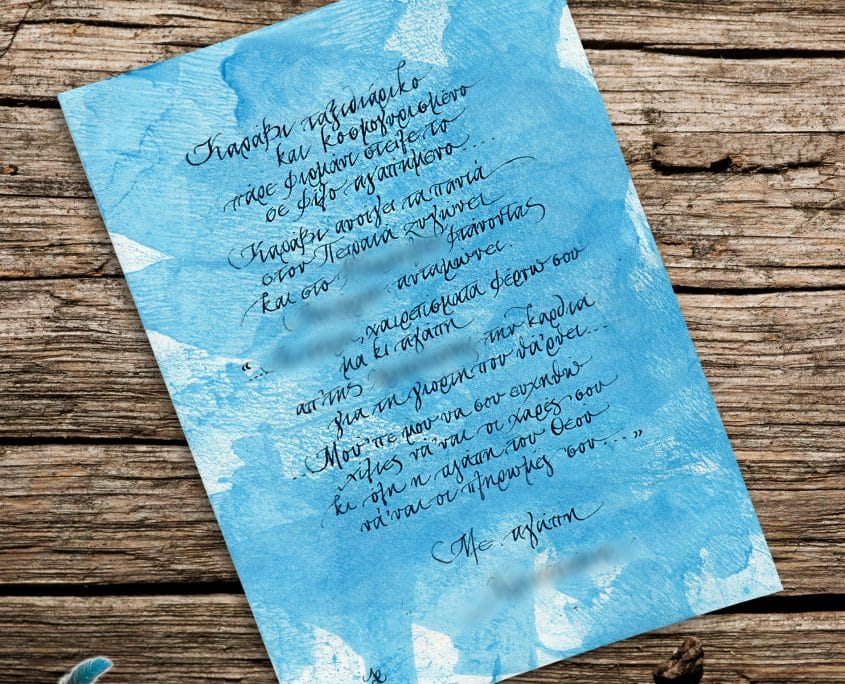 Καράβι ταξιδιάρικο
και κοσμογυρισμένο
πάρε φιρμάνι στείλε το
σε φίλο αγαπημένο...
Καράβι ανοίγει τα πανιά
στον Πειραιά ζυγώνει
και στο φτάνοντας
ανταμώνει.
"... , χαιρετίσματα φέρνω σου
μα κι αγάπη
απ' της την καρδιά
για τη γιορτή που θά'ρνει...
Μού 'πε μου να σου ευχηθώ
χίλιες νά 'ναι οι χαρές σου
κι όλη η αγάπη του Θεού
νά 'ναι οι πληρωμές σου..."
Με αγάπη